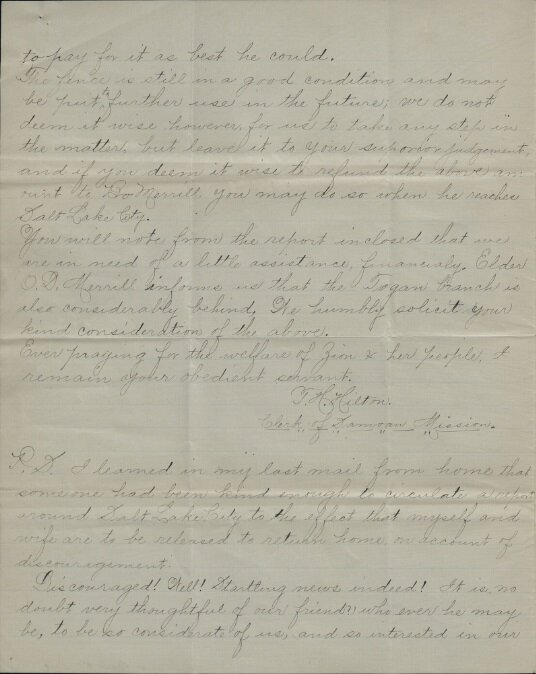 to pay for it as best he could.
The fence is still in a good condition and may
be put to further use in the future; we do not
deem it wise however, for us to take any step in
the matter, but leave it to your superior judgement,
and if you deem it wise to refund the above am-
ount to Bo Merrill you may do so when he reaches
Salt Lake City.
You will note from the report inclosed that we
are in need of a little assistance, financialy. Elder
O.D. Merrill informs us that the Togan Branch is
also considerably behind. We humbly solicit your
kind consideration of the above.
Ever praying for the welfare of Zion & her people, I
remain your obedient servant.
T.H. Hilton.
Clerk of Samoan Mission.
P.S. I learned in my last mail from home that
someone had been kind enough to circulate a report
around Salt Lake City to the effect that myself and
wife are to be released to return home on account of
discouragement.
Discouraged! Well! Startling news indeed! It is no
doubt very thoughtful of our friend?) who ever he may
be, to be so considerate of us, and so interested in our